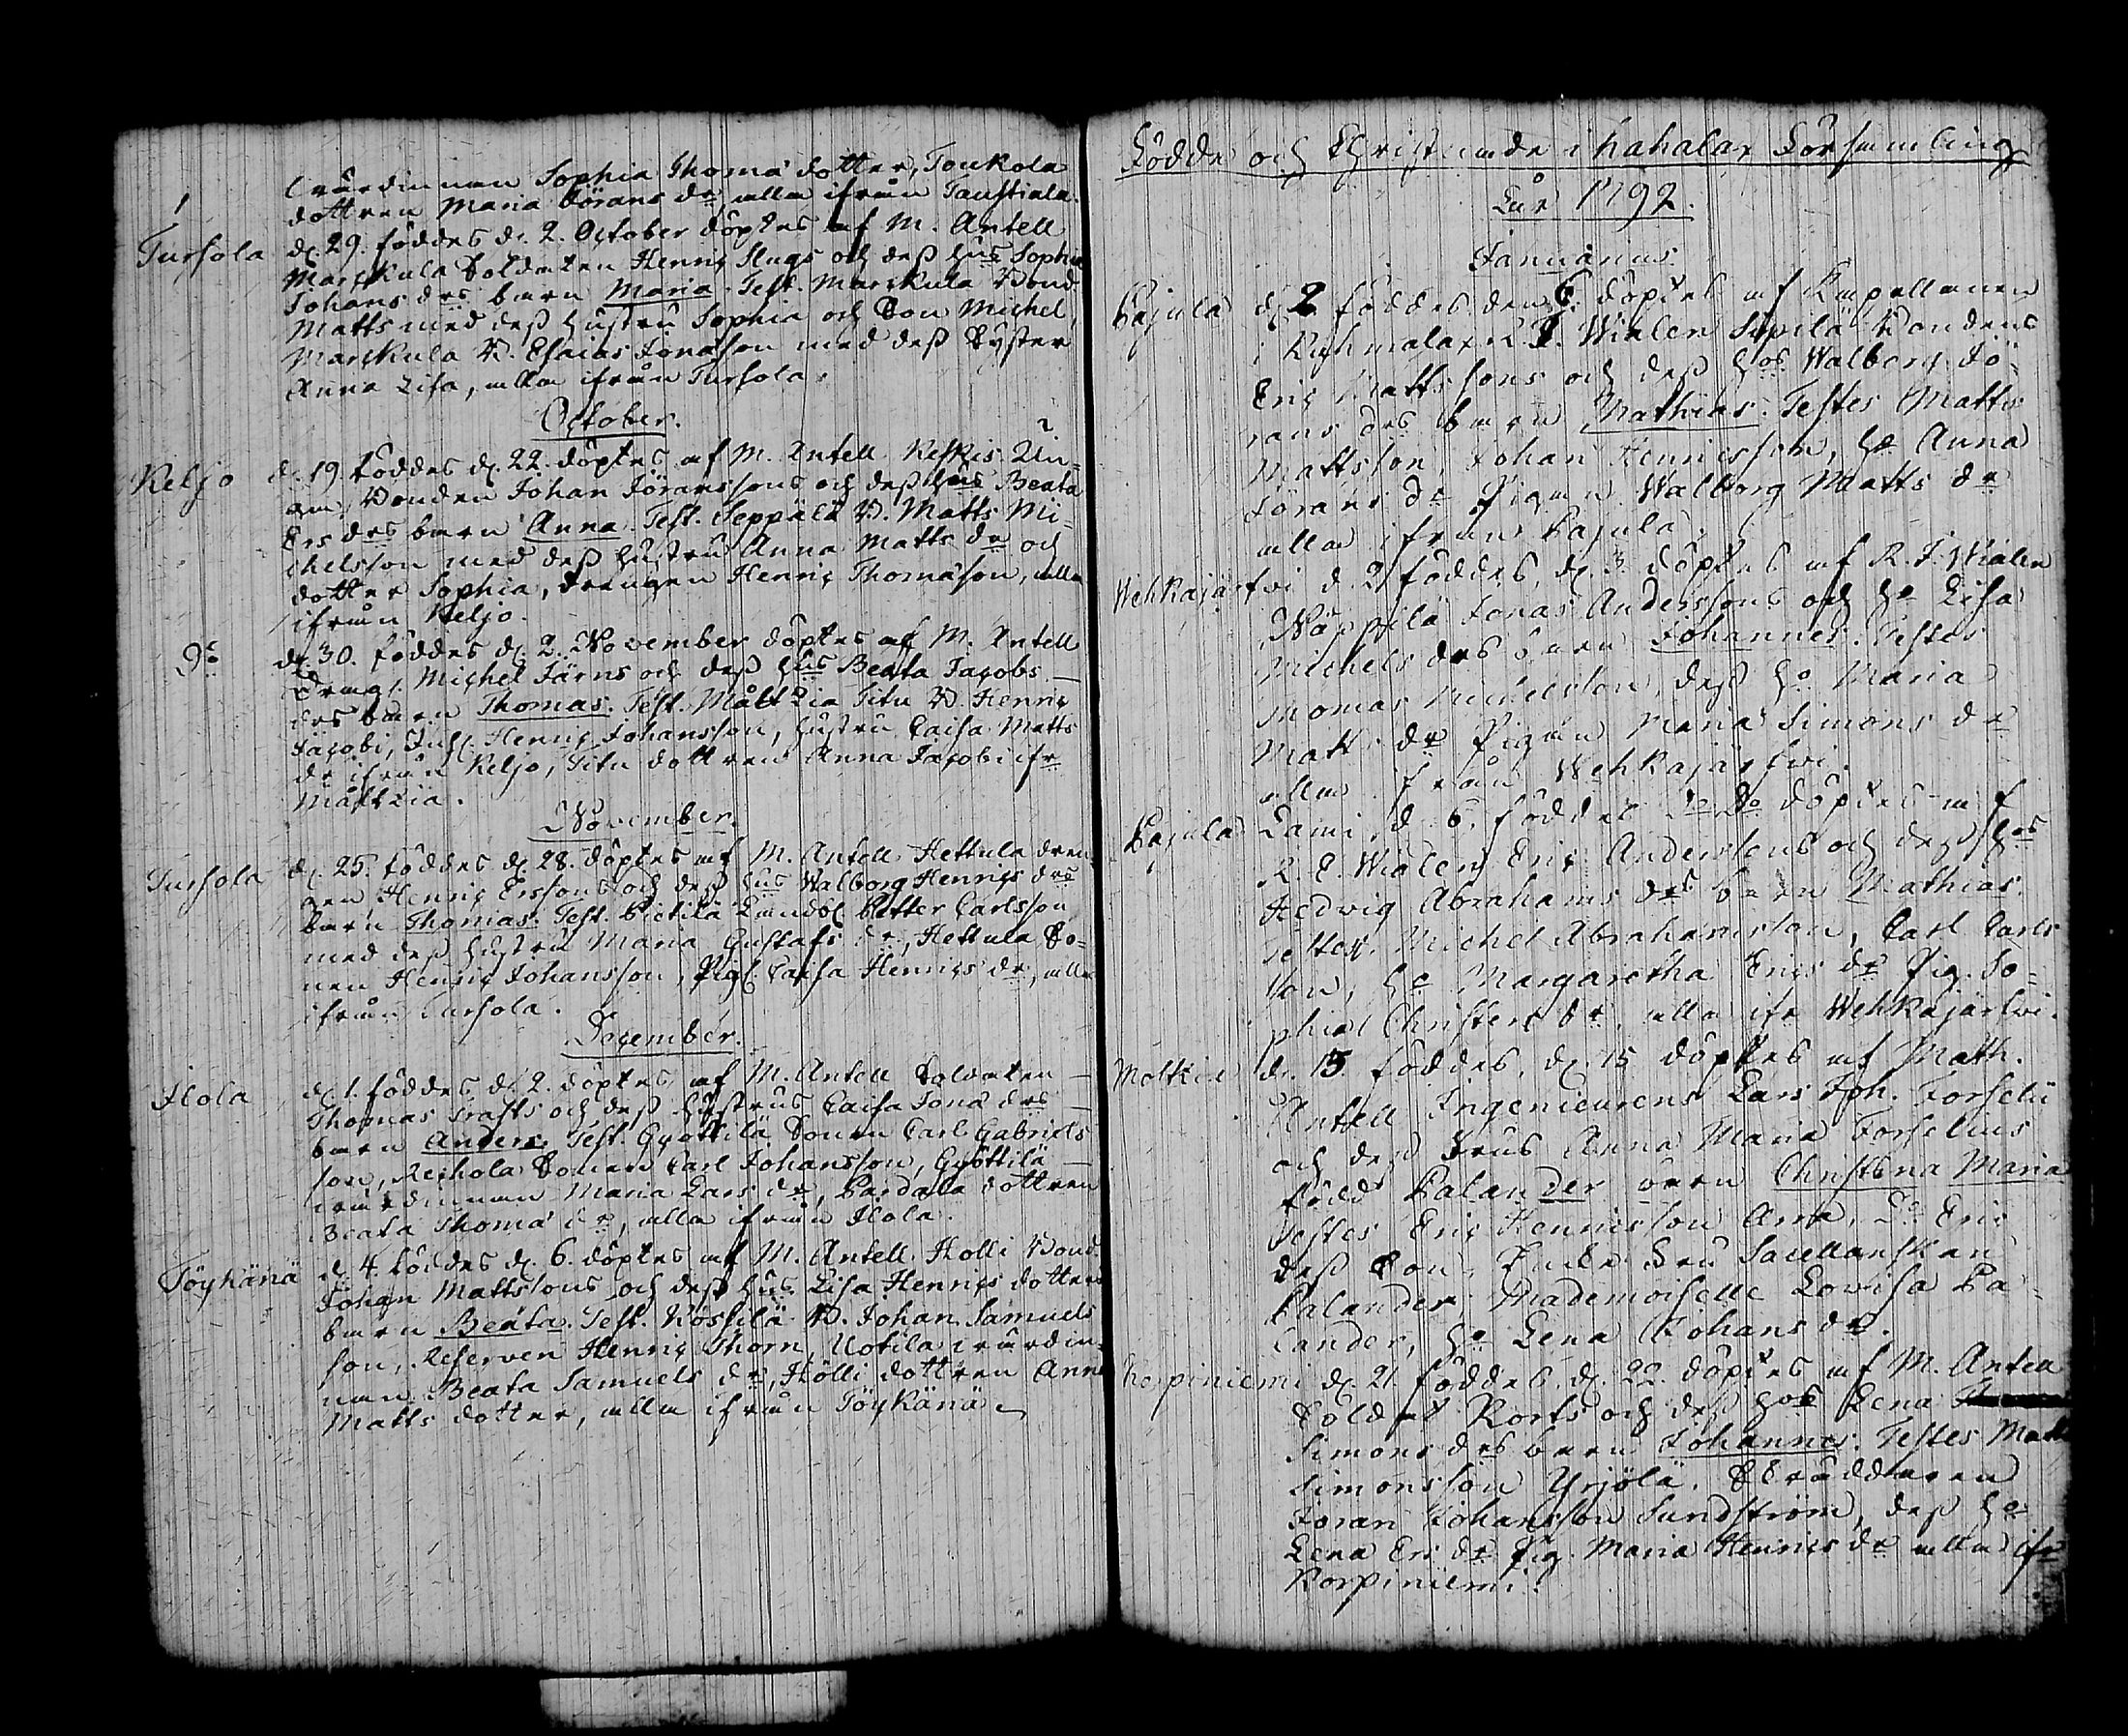 wärdinnan Sophia Thomæ dotter, Toukola
dottren Maria Jörans dr, alla ifrån Taustiala.
Tursola d. 29. föddes d. 2. October döptes af M. Antell
Marckula Soldaten Henric Slugs och dess hus Sophia
Johans drs barn Maria. Test. Marckula Bond.
Matts med dess hustru Sophia och Son Michel,
Marckula B. Esaias Jonasson med dess Syster
Anna Lisa, alla ifrån Tursola.
October.
Keljo d. 19. föddes d. 22. döptes af M. Antell Keskis
Bonden Johan Jöranssons och dess hus Beata
Ers drs barn Anna. Test. Seppälä B. Matts Mi-
chelsson med dess hustru Anna Matts dr och
dotter Sophia, drengen Henric Thomasson, alla
ifrån Keljo.
Do d. 30. föddes d. 2. November döptes af M. Antell
Michel Järns och dess hus Beata Jacobs
drs barn Thomas. Test. Måltzia Titu B. Henric
Jacobi, Henric Johansson, hustru Caisa Matts
dr ifrån Keljo, Titu dottren Anna Jacobi ifr
Måltzia.
November.
Tursola d. 25. föddes d. 28. döptes af M. Antell Hettula dren-
gen Henric Erssons och dess hus Walborg Henrics drs
barn Thomas. Test. Pietilä Petter Carlsson
med dess hustru Maria Gustafs dr, Hettula So-
nen Henric Johansson, Pig. Caisa Henrics dr, alla
ifrån Tursola.
December.
Ilola d. 1. föddes d. 2. döptes af M. Antell Soldaten
Thomas Crafts och dess hustrus Caisa Jonæ drs
barn Anders. Test. Gyöttilä Sonen Carl Gabriels
son, Rekola Sonen Carl Johansson, Gyöttilä
wärdinnan Maria Lars dr, Pardala dottren
Beata Thomæ dr, alla ifrån Ilola.
Töykänä d. 4. föddes d. 6. döptes af M. Antell Holli Bond.
Johan Mattssons och dess hus Lisa Henrics dotters
barn Beata. Test. Kössilä B. Johan Samuels
son, Reserven Henric Thorn, Uotila wärdin-
nan Beata Samuels dr, Hölli dottren Anna
Matts dotter, alla ifrån Töykänä
Födde och Christnade i Kahalax Församling
År 1792.
Januarius
Pajula d. 2 föddes den 6. döptes af Kapellanen
i Kyhmalax Wialen Sipilä Bondens
Eric Mattssons och dess hos Walborg Jö-
rans drs barn Mathias. Testes Matts
Mattsson, Johan Henricsson, ho Anna
Jörans dr Pigan Walborg Matts dr
alla ifrån Pajula.
Wehkajärfwi d. 2 föddes, d. 3. döptes af R. J. Wialen
Näppilä Jonas Anderssons och ho Lisa
Michels drs barn Johannes. Testes
Thomas Michelsson, dess ho Maria
Matts dr Pigan Maria Simons dr
alla ifrån Wehkajärfwi.
Pajula Lami d. 6. föddes döptes af
Wialen Eric Anderssons och dess hos
Hedvig Abrahams drs barn Mathias.
Testes. Michel Abrahamsson, Carl Carls
son, ho Margaretha Erics dr Pig. So-
phia Christers dr, alla ifr Wehkajärfwi.
Moltkia d. 13. föddes, d. 15 döptes af Math.
Antell Ingenieurens Lars Joh. Forselii
och dess Frus Anna Maria Forselius
född Palander barn Christina Maria
Testes Eric Henricsson Arra, Do Eric
dess Son, Fru Sacellanskan
Palander, Mademoiselle Lovisa Pa-
lander, ho Lena Johans dr.
Korpiniemi d. 21. föddes, d. 22. döptes af M. Antell
Soldat Korts och dess hos Lena
Simons drs barn Johannes. Testes Matts
Simonsson Yrjölä,
Jöran Johansson Sundström, dess ho
Lena Ers dr Pig. Maria Henrics dr alla ifr
Korpiniemi.